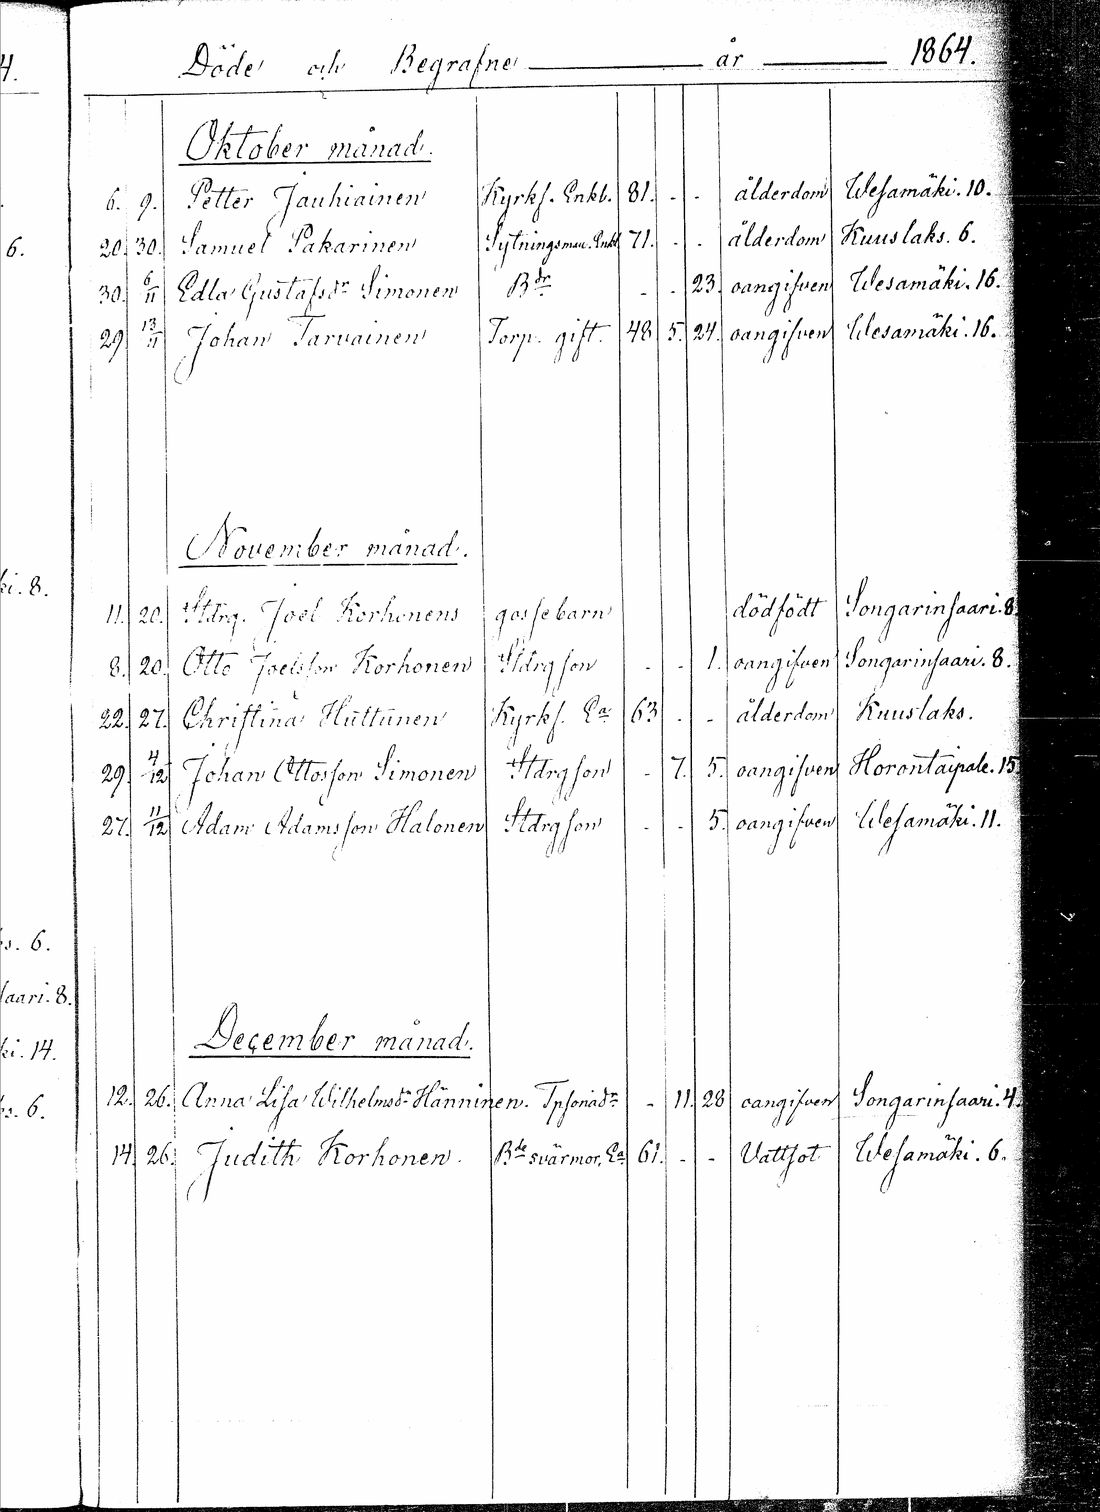 4.
Döde och Begrafne år 1864.
Oktober månad.
6. 9. Petter Jauhiainen Kyrkf. Enkb. 81. - - ålderdom Wesamäki. 10.
6.
20. 30. Samuel Pakarinen Sytningsman. Enkl 71. - - ålderdom Kuuslaks. 6.
30. 6/11 Edla Gustafsdr Simonen Bdr - - 23. oangifven Wesamäki. 16.
29 13/11 Johan Tarvainen Torp. gift. 48 5. 24. oangifven Wesamäki. 16.
November månad.
ki. 8.
11. 20. Stdrg. Joel Korhonens gossebarn dödfödt Songarinsaari. 8
8. 20. Otto Joelsson Korhonen Stdrgson - - 1. oangifven Songarinsaari. 8.
22. 27. Christina Huttunen Kyrkf. Ea 63 - - ålderdom Kuuslaks.
29. 4/12 Johan Ottosson Simonen Stdrgson - 7. 5. oangifven Horontaipale. 15
27. 11/12 Adam Adamsson Halonen Stdrgson - - 5. oangifven Wesamäki. 11.
s. 6.
saari. 8.
December månad.
ki. 14.
12. 26. Anna Lisa Wilhelmsdr Hänninen. Tpsonadr - 11. 28 oangifven Songarinsaari. 4.
s. 6.
14. 26. Judith Korhonen. Bde svärmor, Ea 61. - - Vattsot Wesamäki. 6.